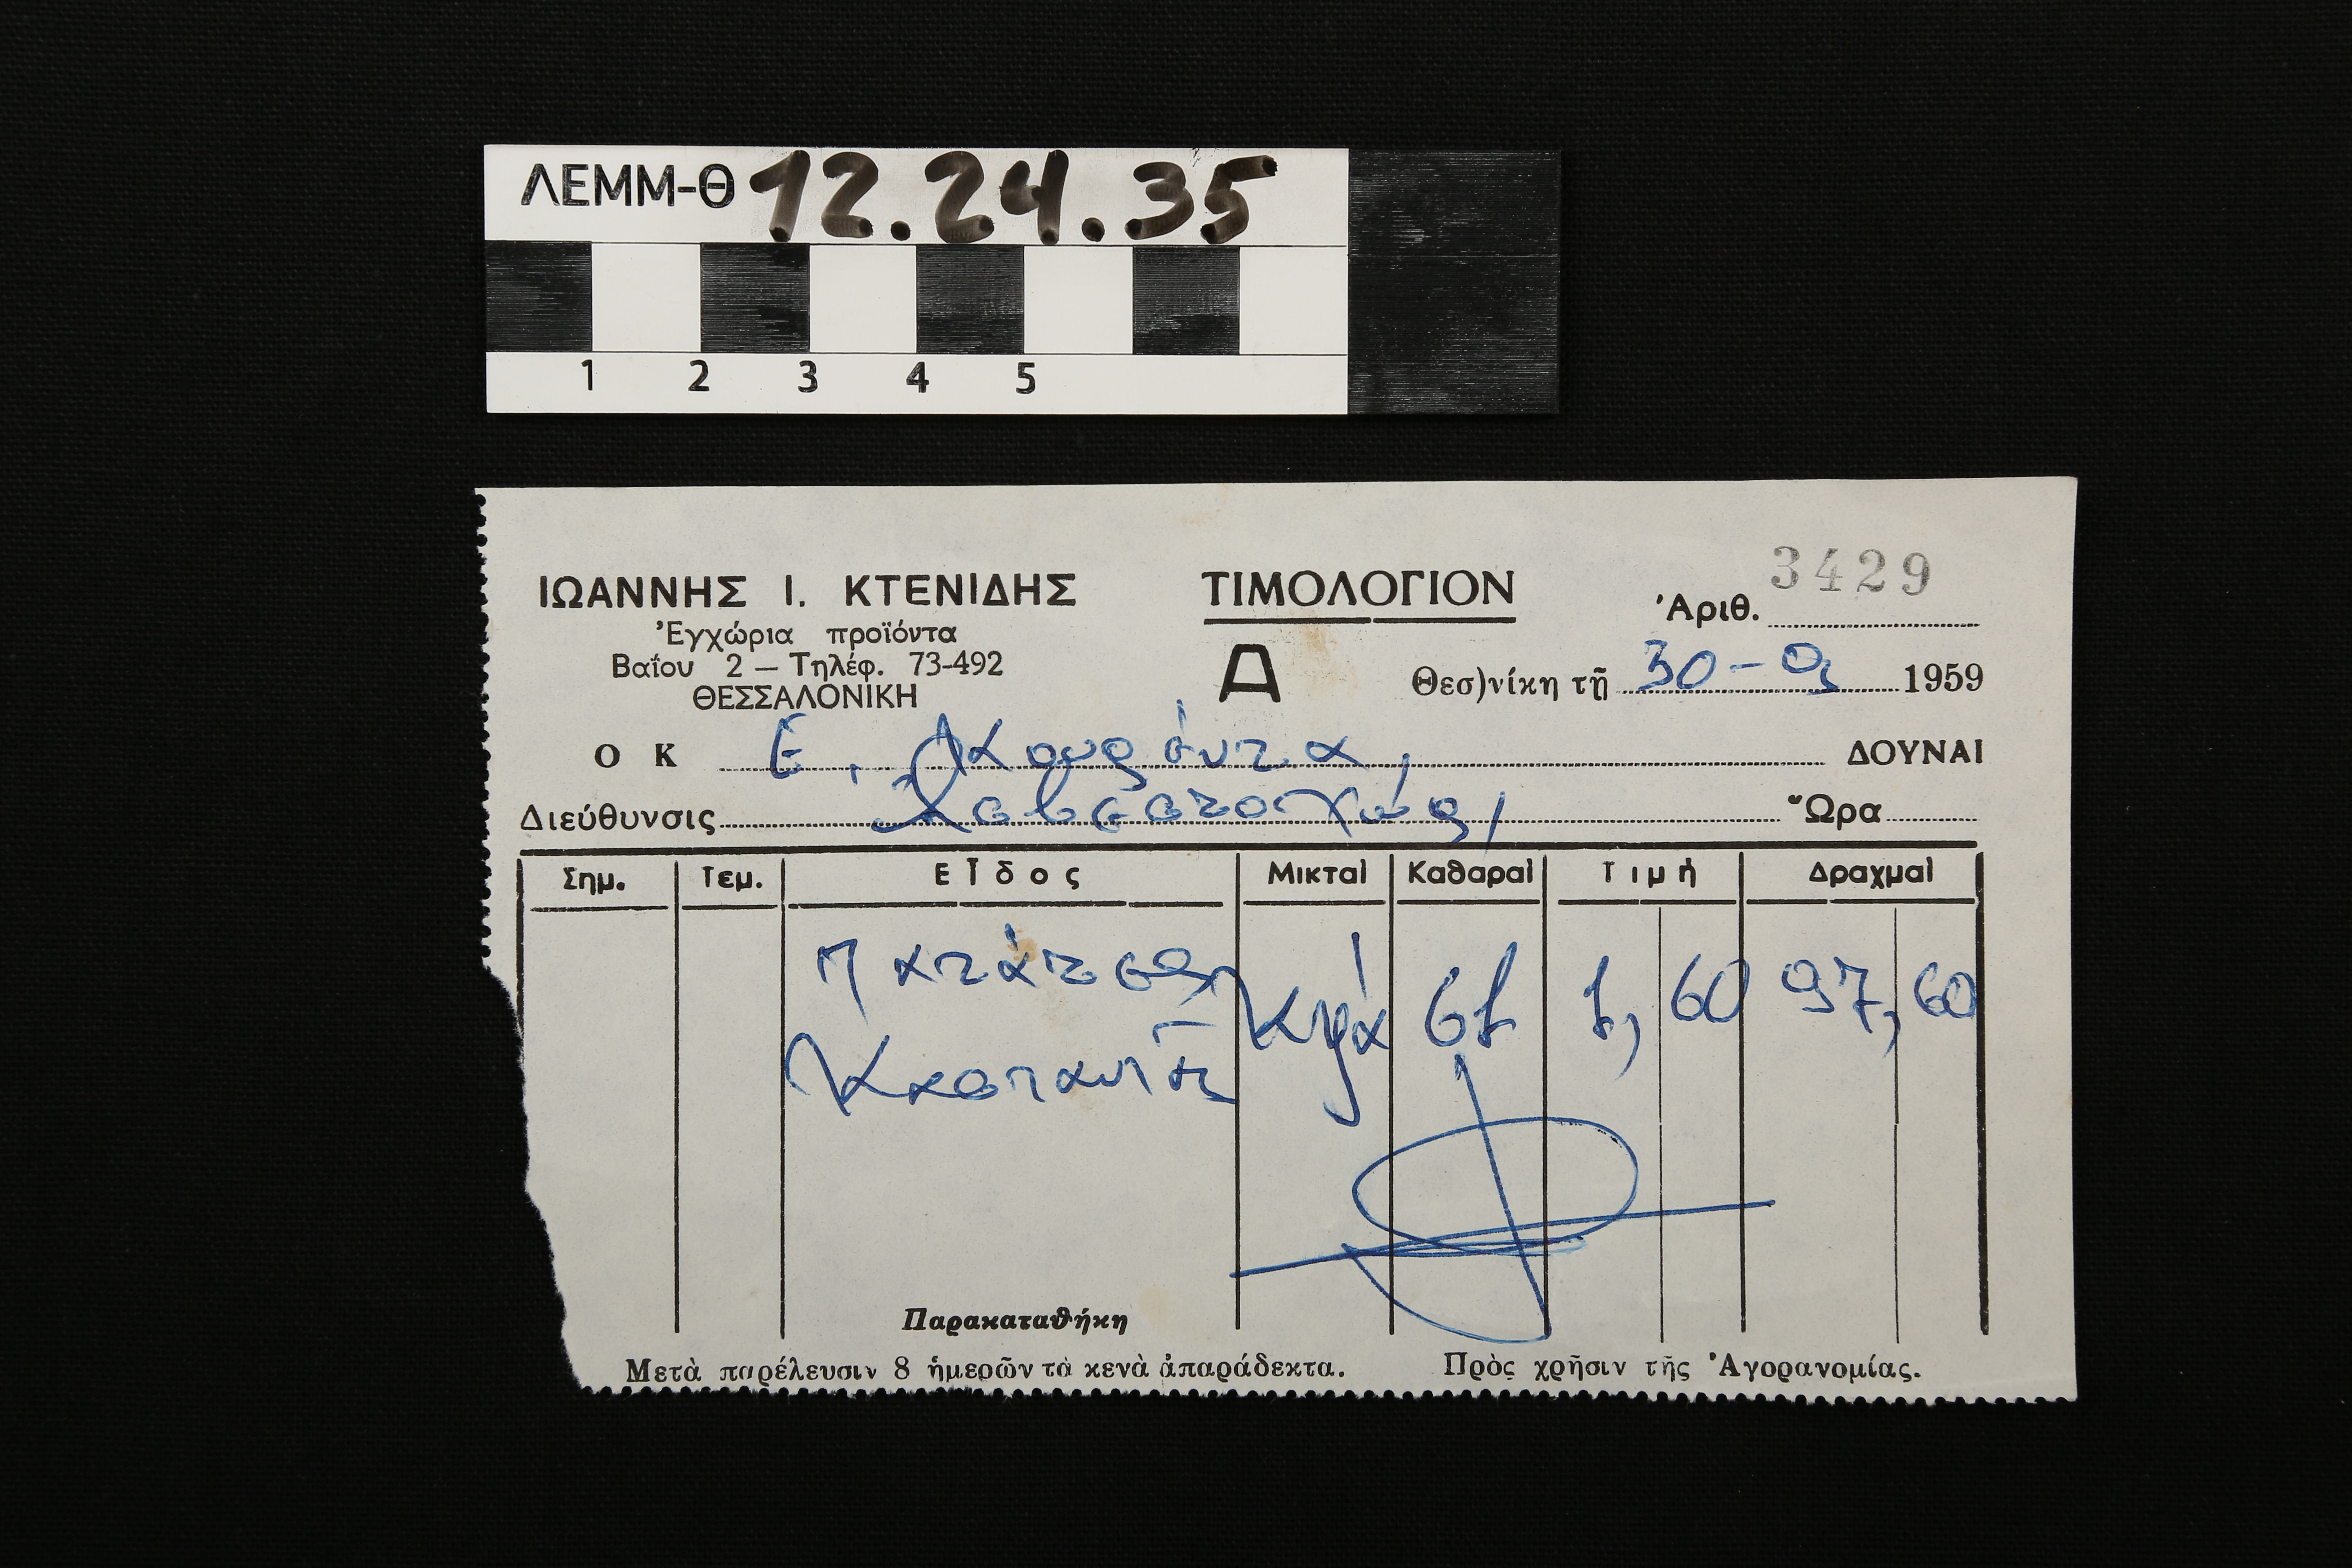 ΛΕΜΜ-Θ 12.24.35
1 2 3 4 5
3429
ΙΩΑΝΝΗΣ Ι. ΚΤΕΝΙΔΗΣ ΤΙΜΟΛΟΓΙΟΝ Ἀριθ.
Ἐγχώρια προϊόντα
Βαΐου 2 — Τηλέφ. 73-492 Α Θεσ)νίκη τῇ 30-9 1959
ΘΕΣΣΑΛΟΝΙΚΗ
Ο Κ Ε. ΔΟΥΝΑΙ
Διεύθυνσις Ὥρα
Σημ. Τεμ. Εἶδος Μικταὶ Καθαραὶ Τιμή Δραχμαὶ
Πατάτες Κγά 61 1,60 97,60
Παρακαταθήκη
Μετὰ παρέλευσιν 8 ἡμερῶν τὰ κενὰ ἀπαράδεκτα. Πρὸς χρῆσιν τῆς Ἀγορανομίας.